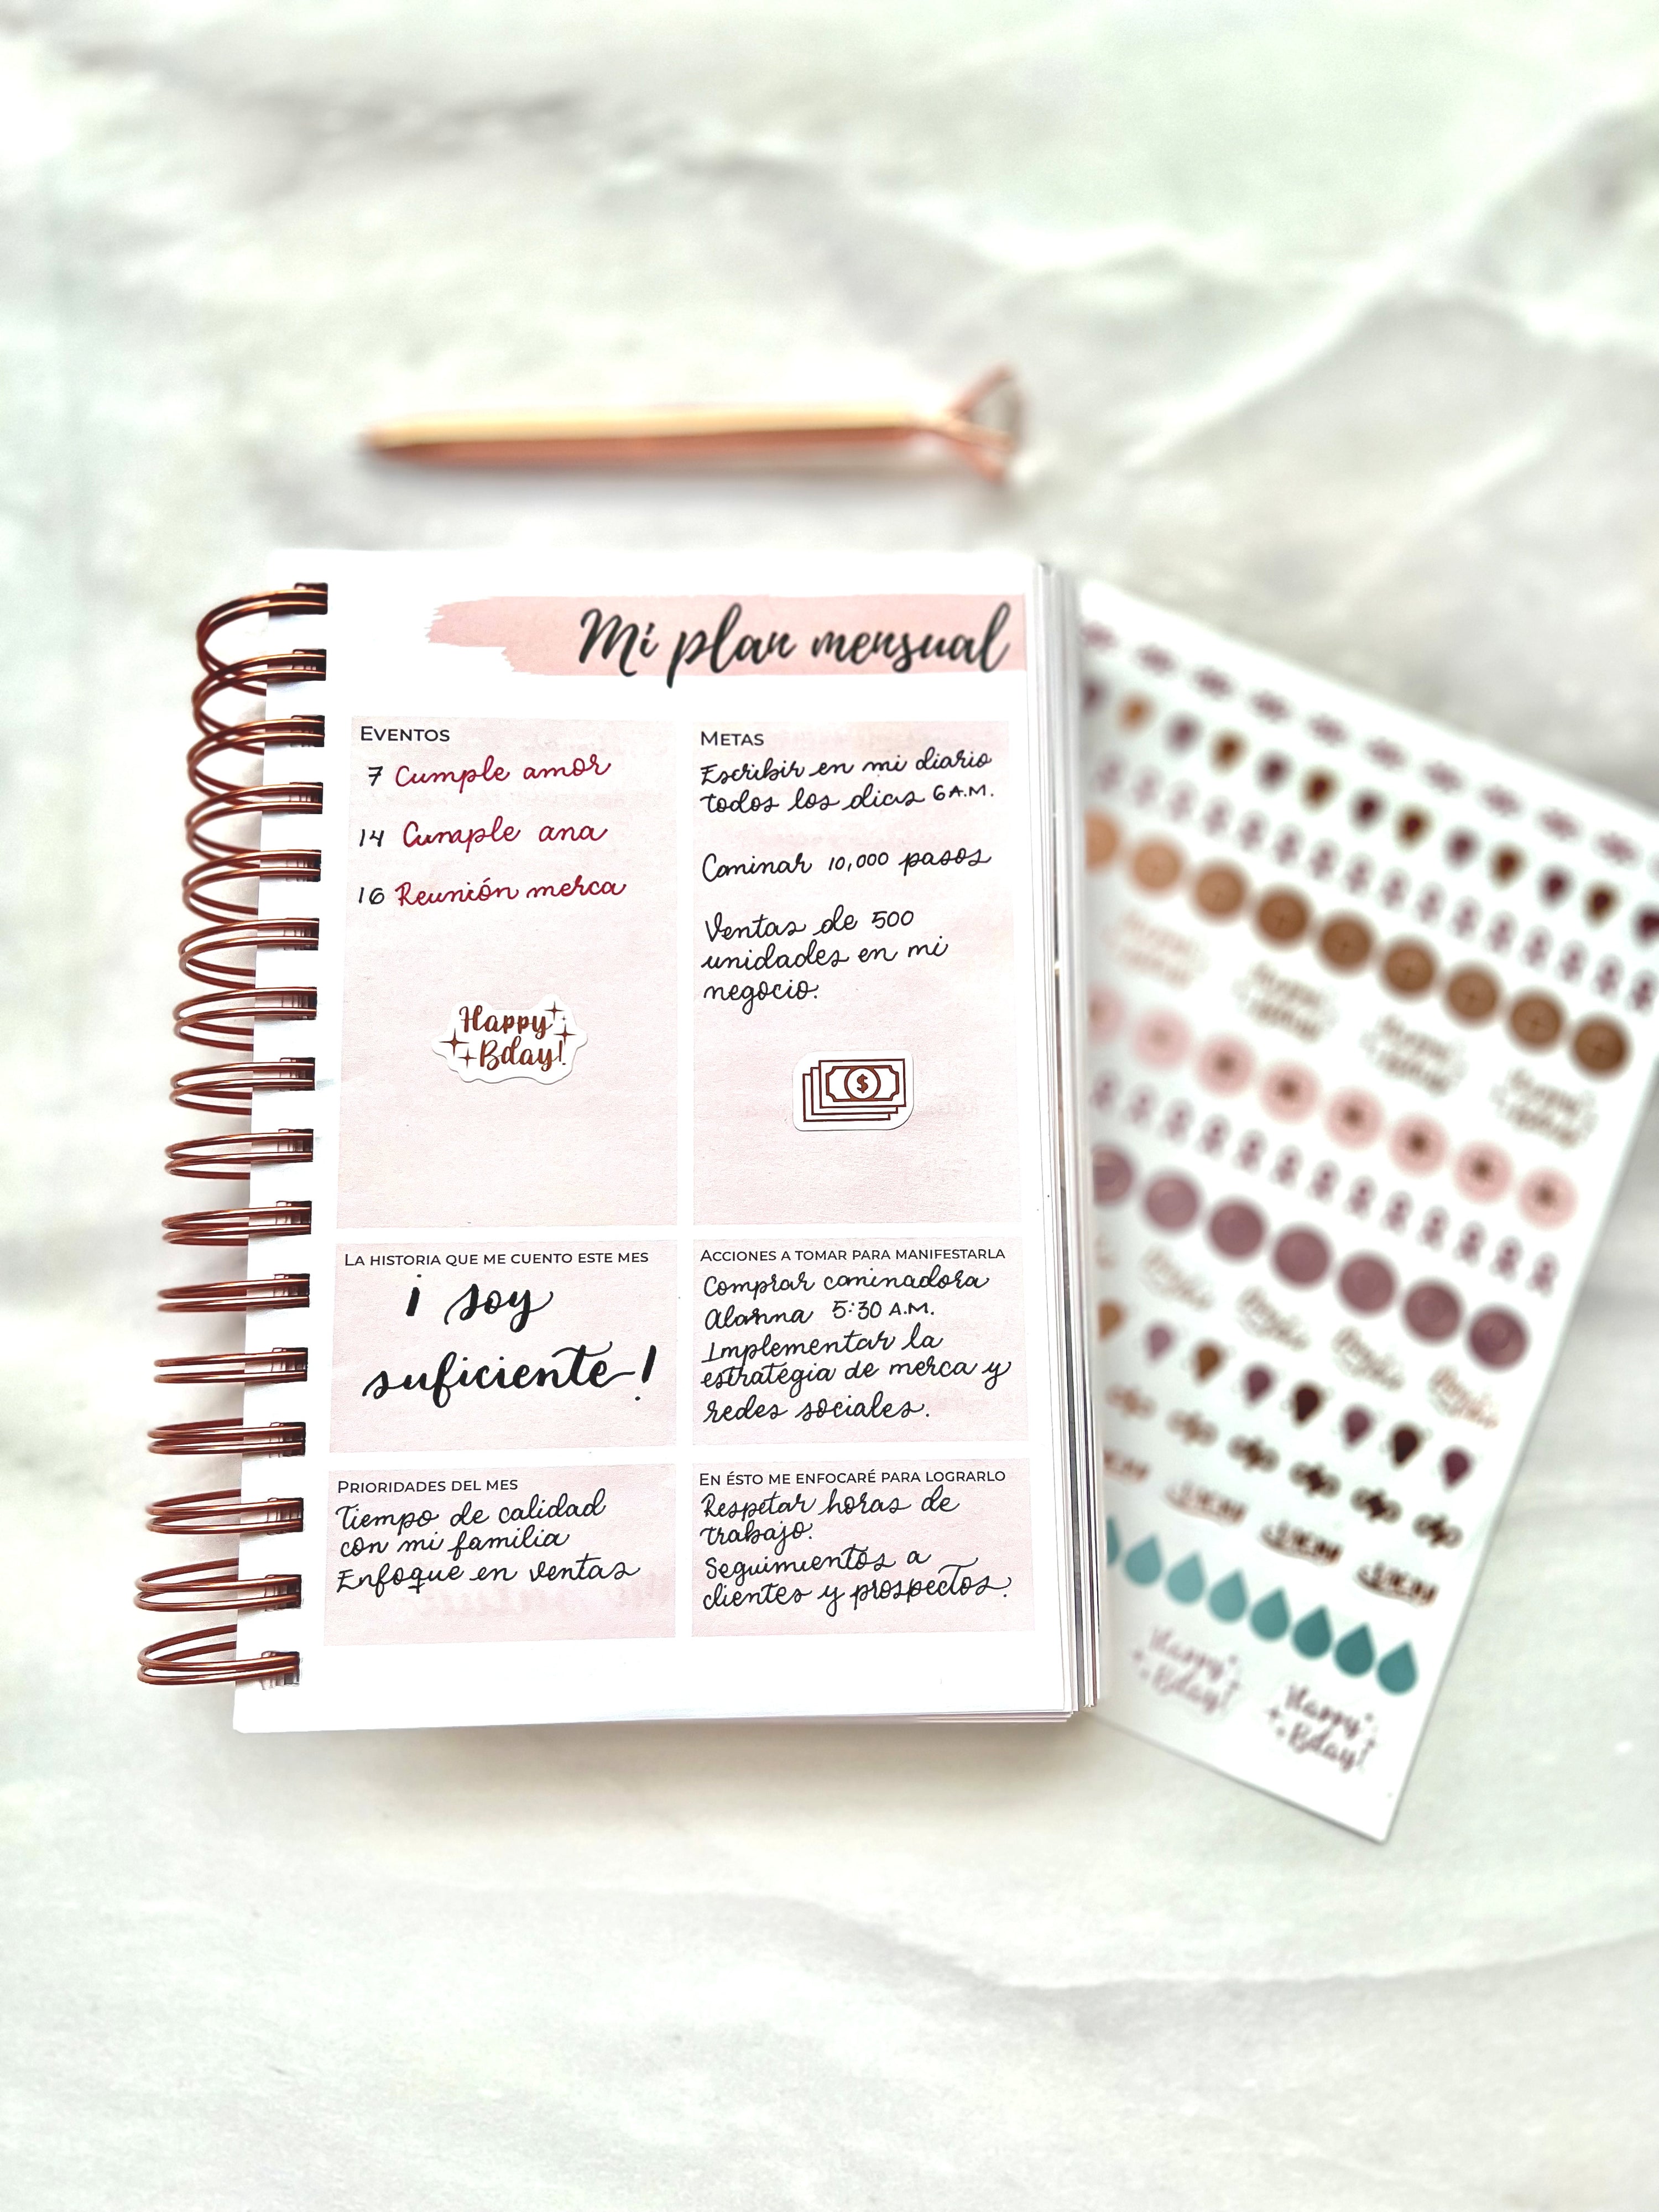 Mi plan mensual
EVENTOS
7 Cumple amor
14 Cumple ana
16 Reunión merca
Happy
Bday!
METAS
Escribir en mi diario
todos los dias 6 A.M.
Caminar 10,000 pasos
Ventas de 500
unidades en mi
negocio.
$
LA HISTORIA QUE ME CUENTO ESTE MES
¡ soy
suficiente!
ACCIONES A TOMAR PARA MANIFESTARLA
Comprar caminadora
Alarma 5:30 A.M.
Implementar la
estrategia de merca y
redes sociales.
PRIORIDADES DEL MES
Tiempo de calidad
con mi familia
Enfoque en ventas
EN ÉSTO ME ENFOCARÉ PARA LOGRARLO
Respetar horas de
trabajo.
Seguimientos a
clientes y prospectos.
Happy
Bday!
Happy
Bday!